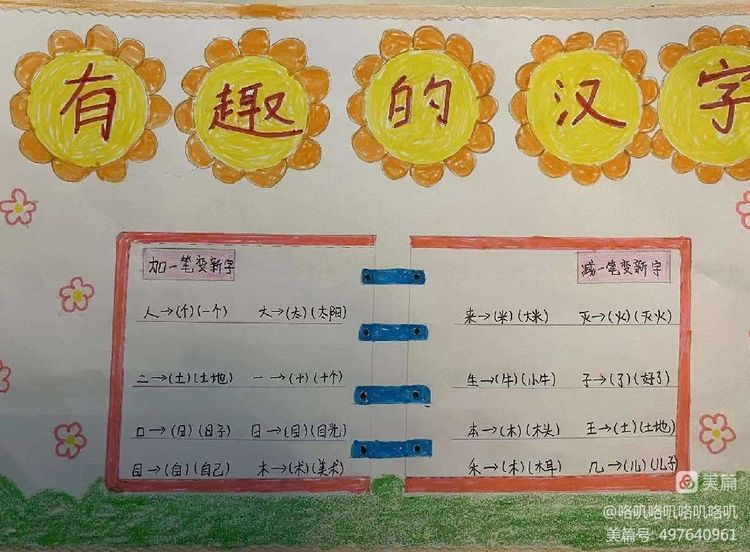 有趣的汉字
加一笔变新字
人→(个)(一个) 大→(太)(太阳)
二→(土)(土地) 一→(十)(十个)
口→(日)(日子) 日→(目)(目光)
目→(自)(自己) 木→(术)(美术)
减一笔变新字
来→(米)(大米) 灭→(火)(灭火)
生→(牛)(小牛) 子→(了)(好了)
本→(木)(木头) 王→(土)(土地)
禾→(木)(木耳) 几→(儿)(儿子)
美篇
@咯叽咯叽咯叽咯叽
美篇号: 497640961